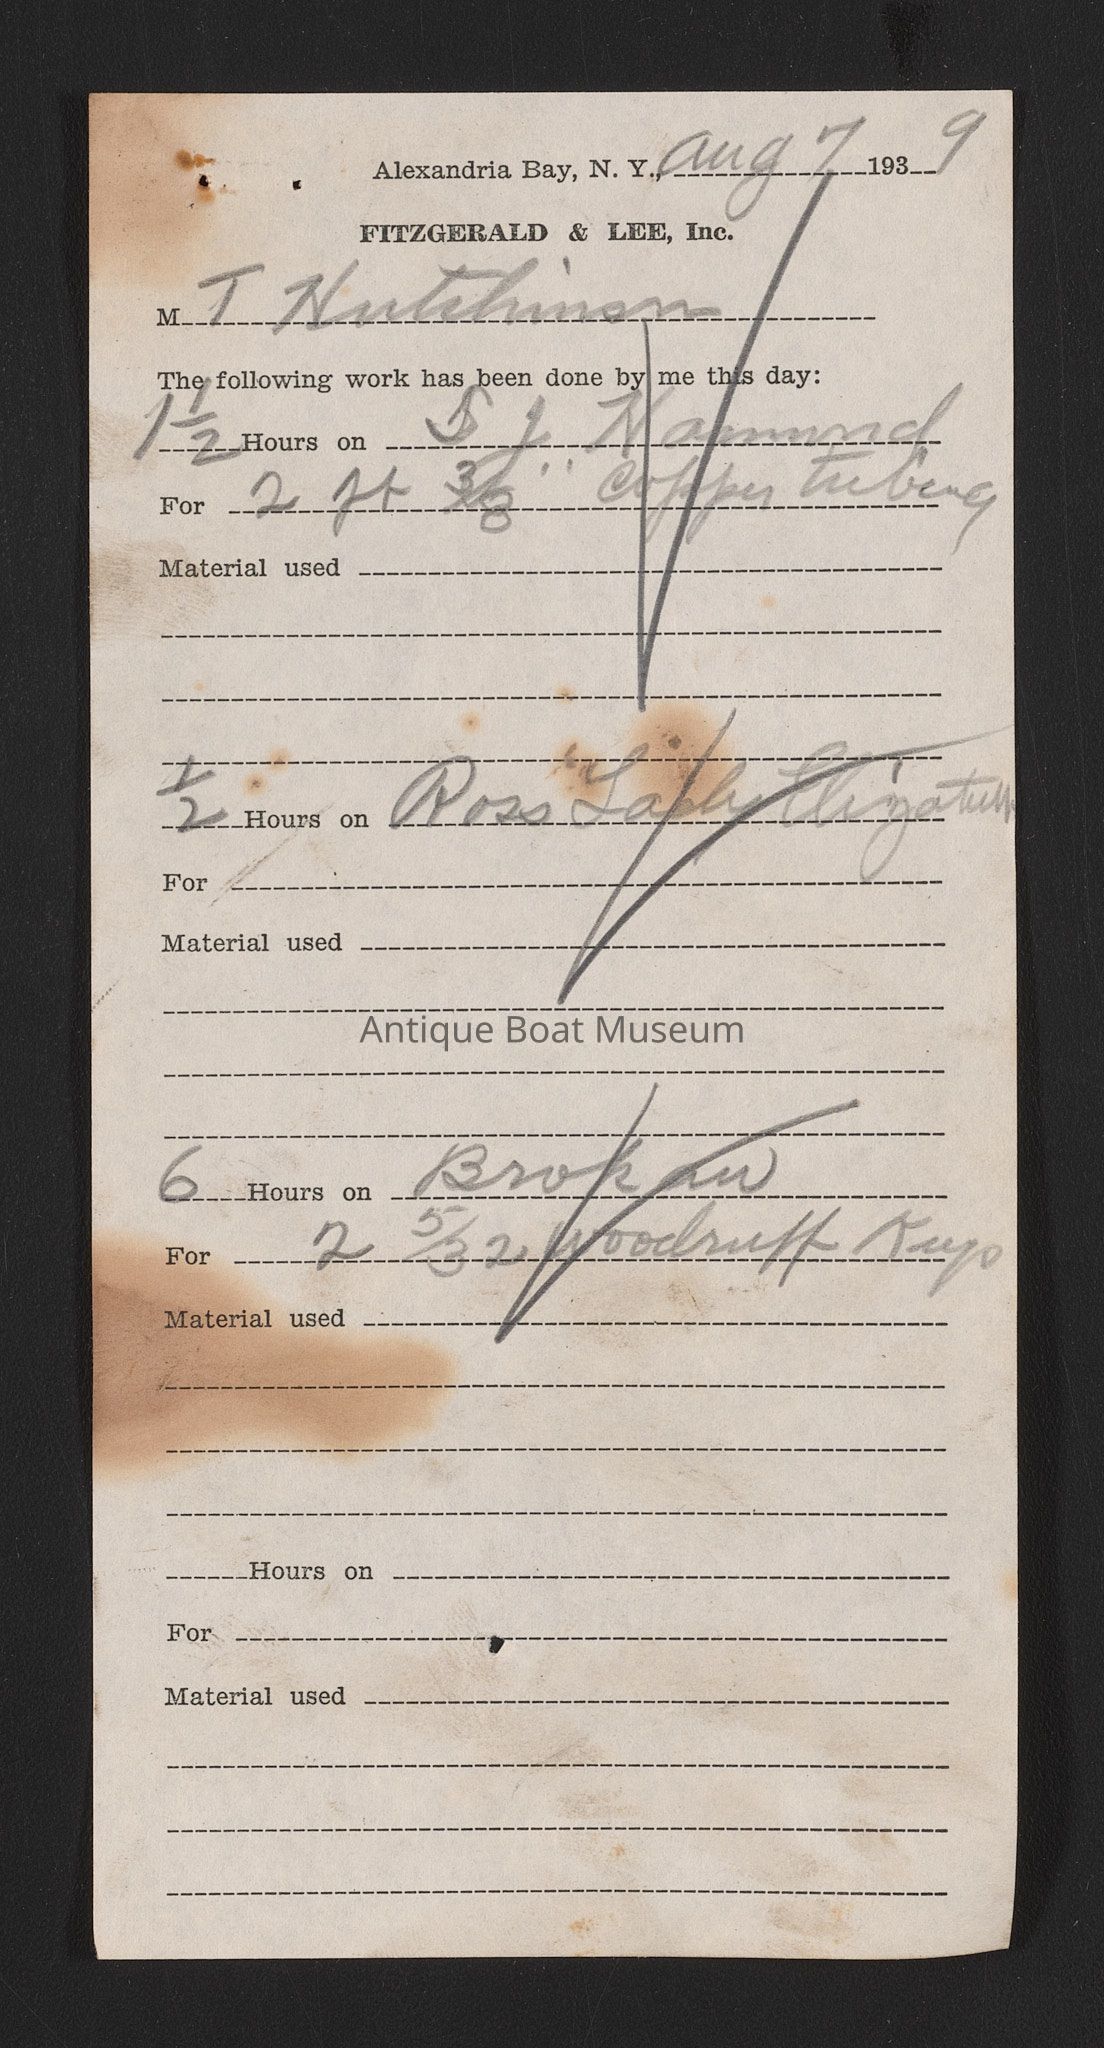 Alexandria Bay, N. Y., Aug 7 1939
FITZGERALD & LEE, Inc.
M T Hutchinson
The following work has been done by me this day:
1 1/2 Hours on S J Hamund
For 2 ft 3/8" copper tubing
Material used
1/2 Hours on Ross "Lady Elizabeth
For
Material used
Antique Boat Museum
6 Hours on Brokaw
For 2 5/32 Woodruff Keys
Material used
Hours on
For
Material used